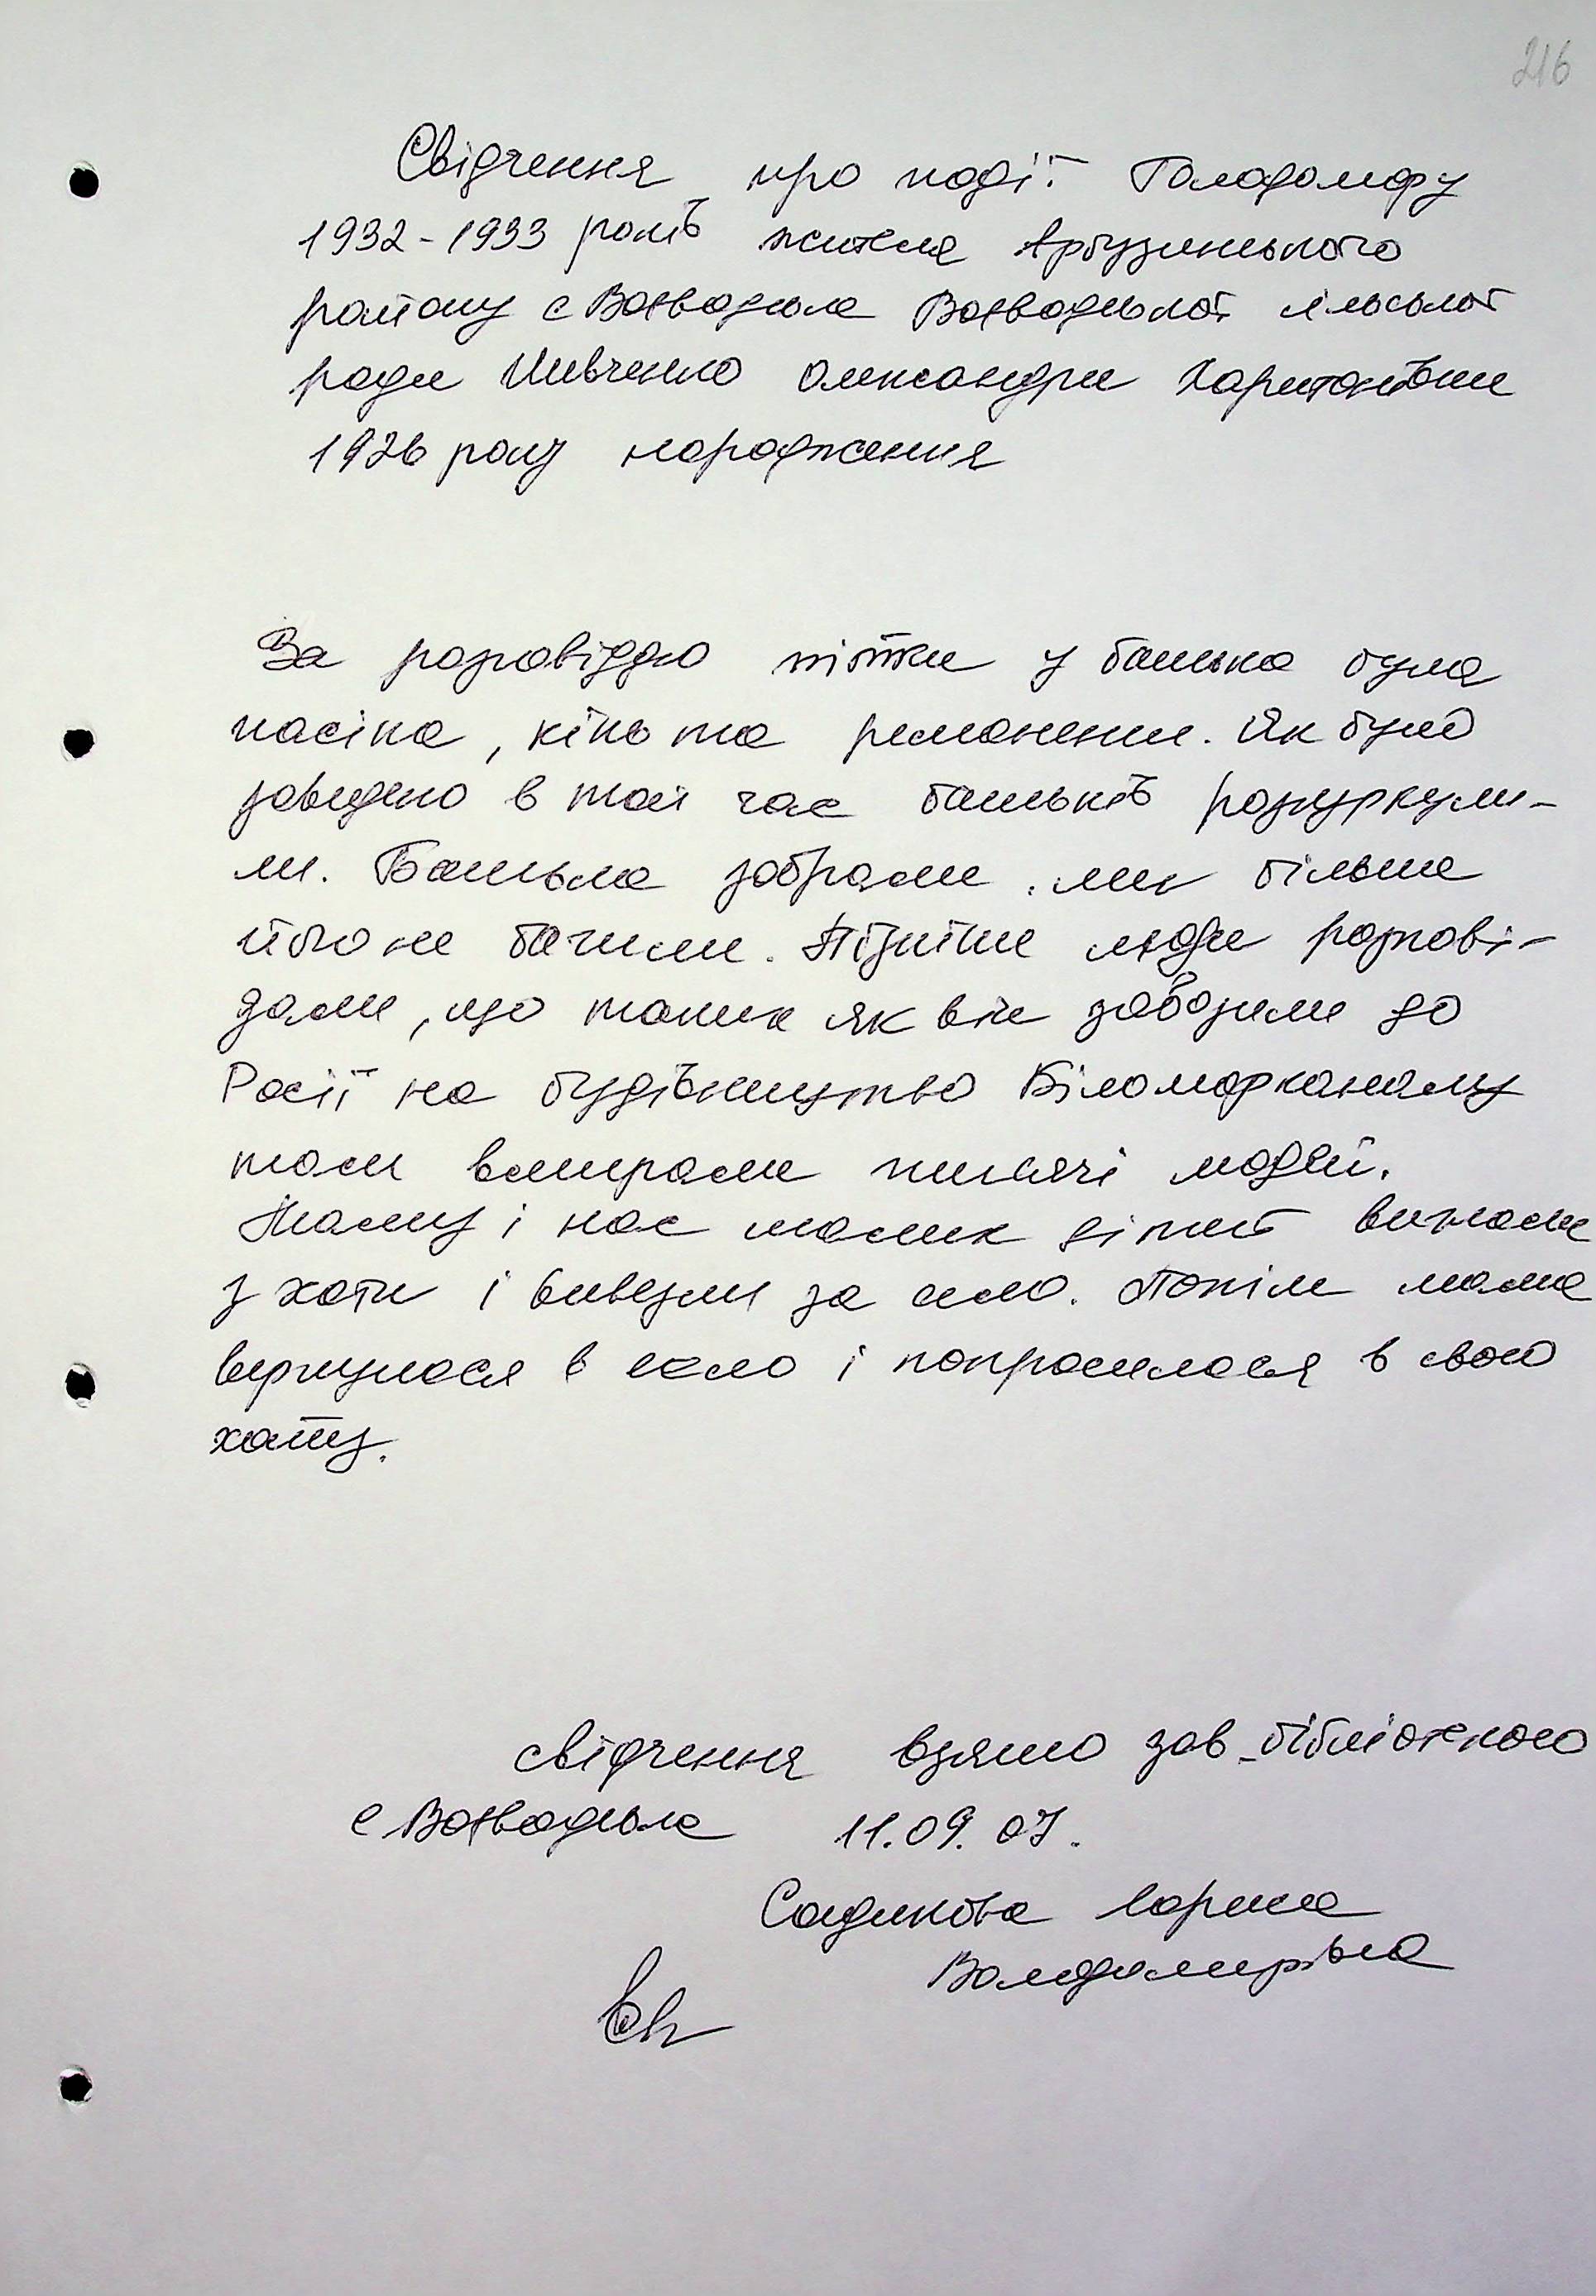 216
Свідчення про події Голодомору
1932-1933 років жителя Арбузинського
району с Воєводське Воєводської сільської
ради Шевченко Олександри Харитонівни
1926 року народження
За розповіддю тітки у батька була
пасіка, кінь та реманент. Як було
заведено в той час батьків розкуркули-
ли. Батька забрали, ми більше
його не бачили. Пізніше люди розпові-
дали, що таких як він завозили до
Росії на будівництво Біломорканалу
там вмирали тисячі людей.
Маму і нас малих дітей вигнали
з хати і вивезли за село. Потім мама
вернулася в село і попросилася в свою
хату.
свідчення взято зав_бібліотекою
с Воєводське 11.09.07.
Садикова Лариса
Володимирівна